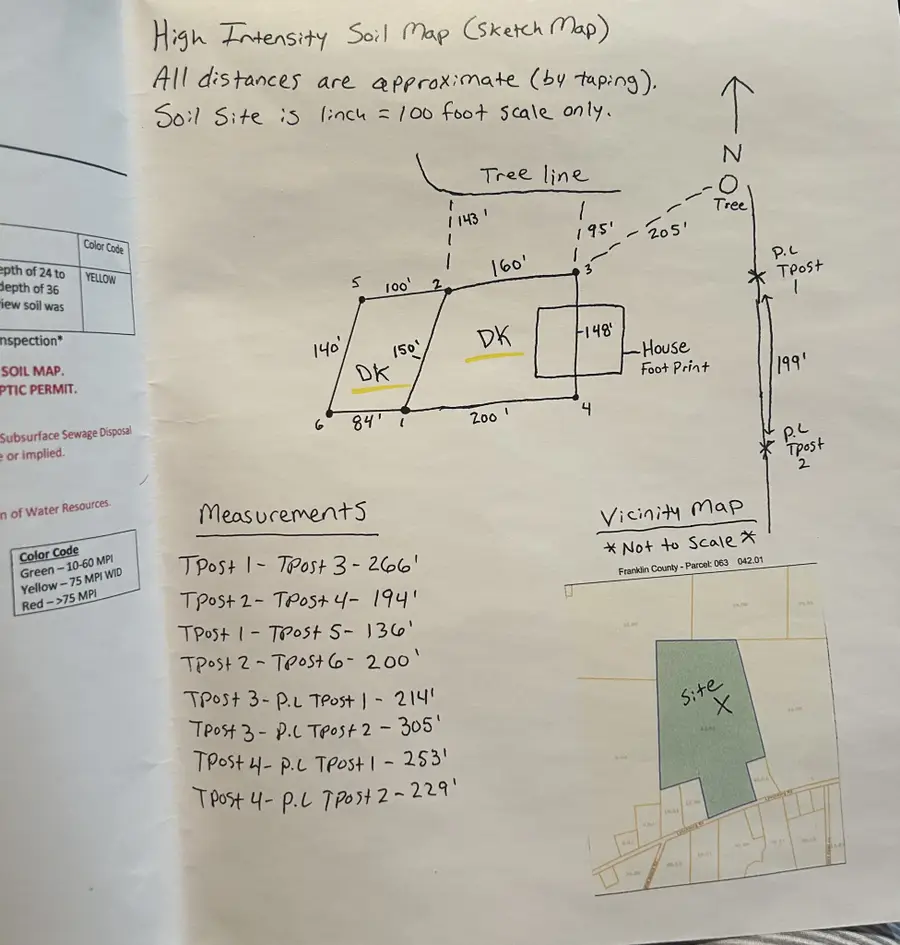 High Intensity Soil Map (Sketch Map)
All distances are approximate (by taping).
Soil Site is 1inch = 100 foot scale only.
N
Tree
Tree line
143'
95'
205'
P.L
TPost
1
199'
P.L
TPost
2
5
100'
2
160'
3
140'
150'
DK
DK
148'
House
Foot Print
6
84'
1
200'
4
Color Code
epth of 24 to
depth of 36
iew soil was
YELLOW
nspection*
SOIL MAP.
PTIC PERMIT.
Subsurface Sewage Disposal
e or implied.
n of Water Resources.
Color Code
Green – 10-60 MPI
Yellow – 75 MPI WID
Red – >75 MPI
Measurements
TPost 1 - TPost 3 - 266'
TPost 2 - TPost 4 - 194'
TPost 1 - TPost 5 - 136'
TPost 2 - TPost 6 - 200'
TPost 3 - P.L TPost 1 - 214'
TPost 3 - P.L TPost 2 - 305'
TPost 4 - P.L TPost 1 - 253'
TPost 4 - P.L TPost 2 - 229'
Vicinity Map
*Not to Scale*
Franklin County - Parcel: 063 042.01
Site
X